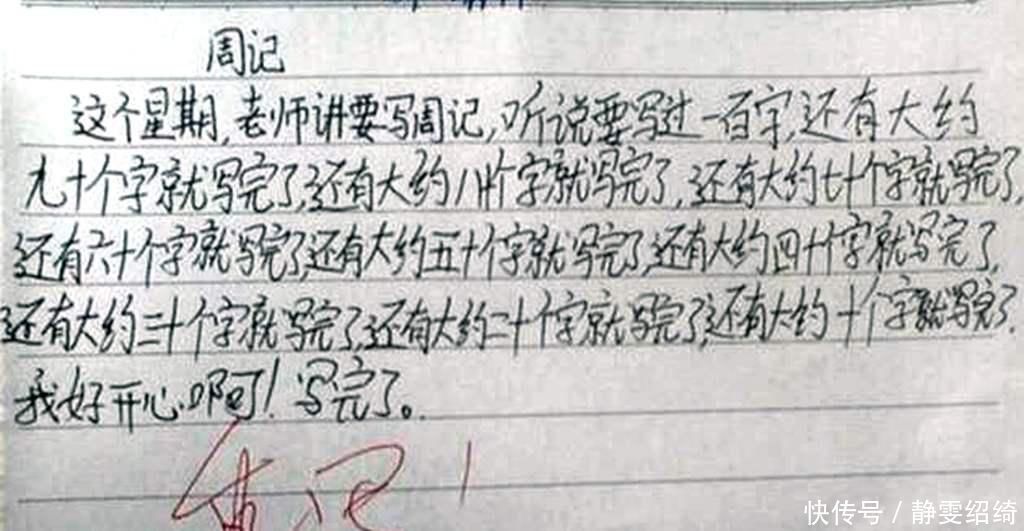 周记
这个星期,老师讲要写周记,听说要写过一百字,还有大约
九十个字就写完了,还有大约八十个字就写完了,还有大约七十个字就写完了,
还有六十个字就写完了,还有大约五十个字就写完了,还有大约四十个字就写完了,
还有大约三十个字就写完了,还有大约二十个字就写完了,还有大约十个字就写完了.
我好开心啊!写完了。
快传号/静雯绍绮